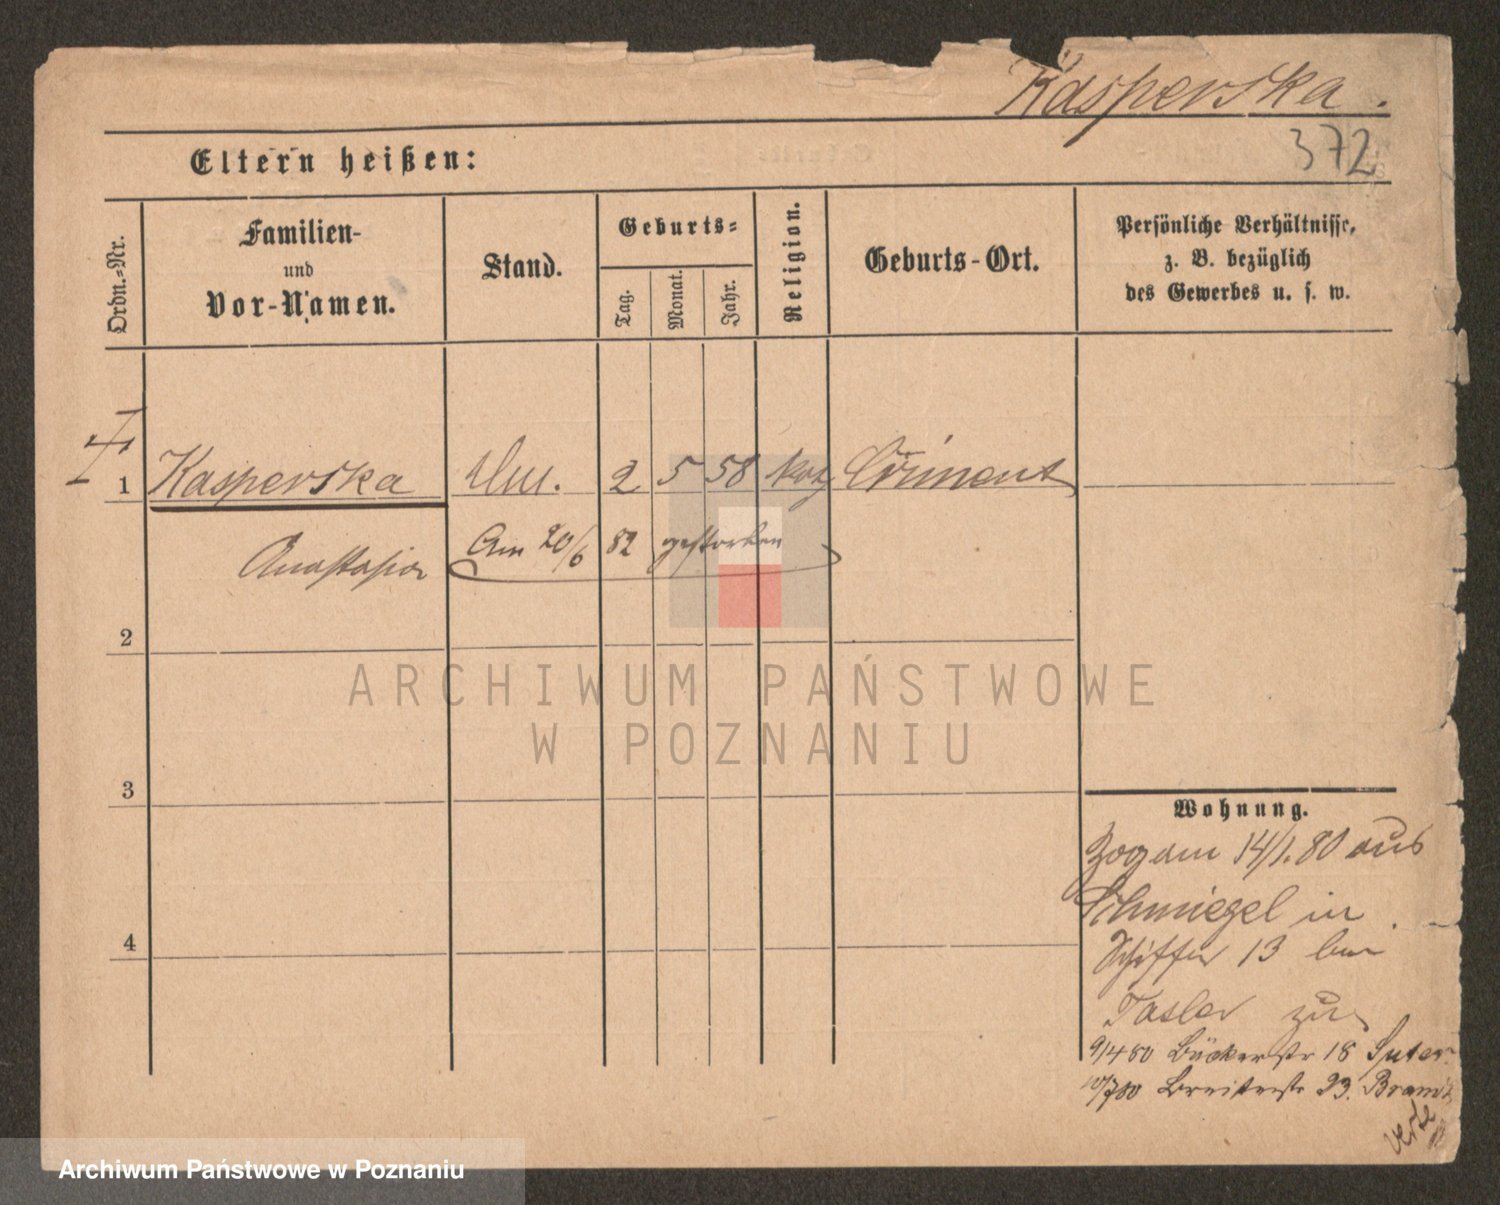 Kasperska.
372
Eltern heißen:
Ordn.=Nr.
Familien-
und
Vor-Namen.
Stand.
Geburts=
Tag.
Monat.
Jahr.
Religion.
Geburts-Ort.
Persönliche Verhältnisse,
z. B. bezüglich
des Gewerbes u. s. w.
1 Kasperska 2 5 58 kath
Anastasia Am 20/6 82 gestorben
2
ARCHIWUM PAŃSTWOWE
W POZNANIU
3
Wohnung.
Zog am 14/1. 80 aus
Schmiegel in
4
Schiffer 13 bei
Tasler zu
9/4 80 Bäckerstr 18 Suter
10/7 80 Breitestr 23.
Archiwum Państwowe w Poznaniu